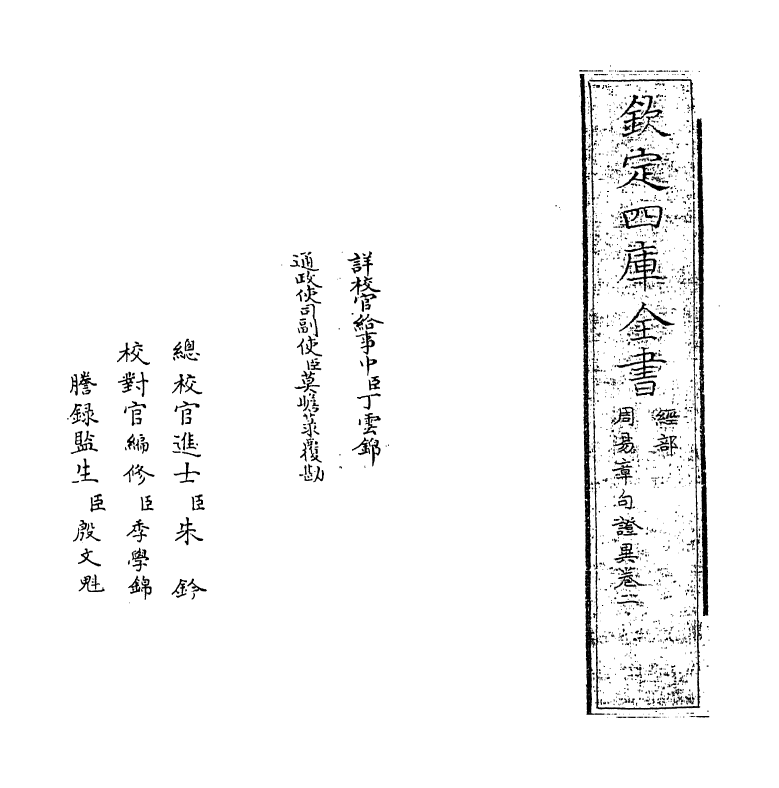 欽定四庫全書
經部
周易章句證異卷二
詳校官給事中臣丁雲錦
通政使司副使臣莫瞻菉覆勘
總校官進士臣朱鈐
校對官編修臣季學錦
謄録監生臣殷文魁